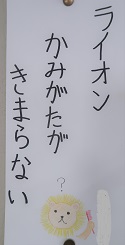 ライオン
かみがたが
きまらない
?